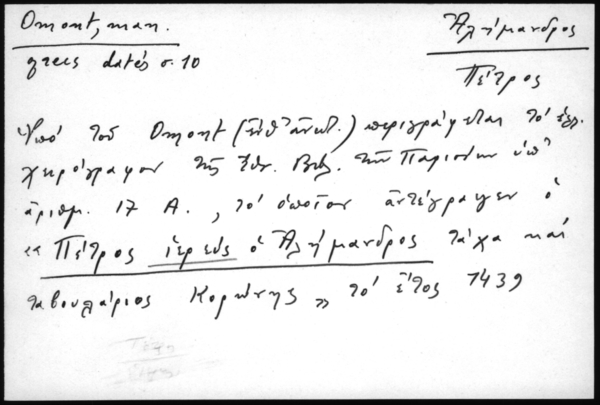 Omont, man.
grecs datés σ. 10
Ἀλήμανδρος
Πέτρος
Ὑπό τοῦ Omont (ἔνθ' ἀνωτ.) περιγράφεται τό ἑλλ.
χειρόγραφον τῆς Ἐθν. Βιβ. τῶν Παρισίων ὑπ'
ἀριθμ. 17 Α., τό ὁποῖον ἀντέγραψεν ὁ
"Πέτρος ἱερεύς ὁ Ἀλήμανδρος τάχα καί
ταβουλάριος Κορώνης" τό ἔτος 1439